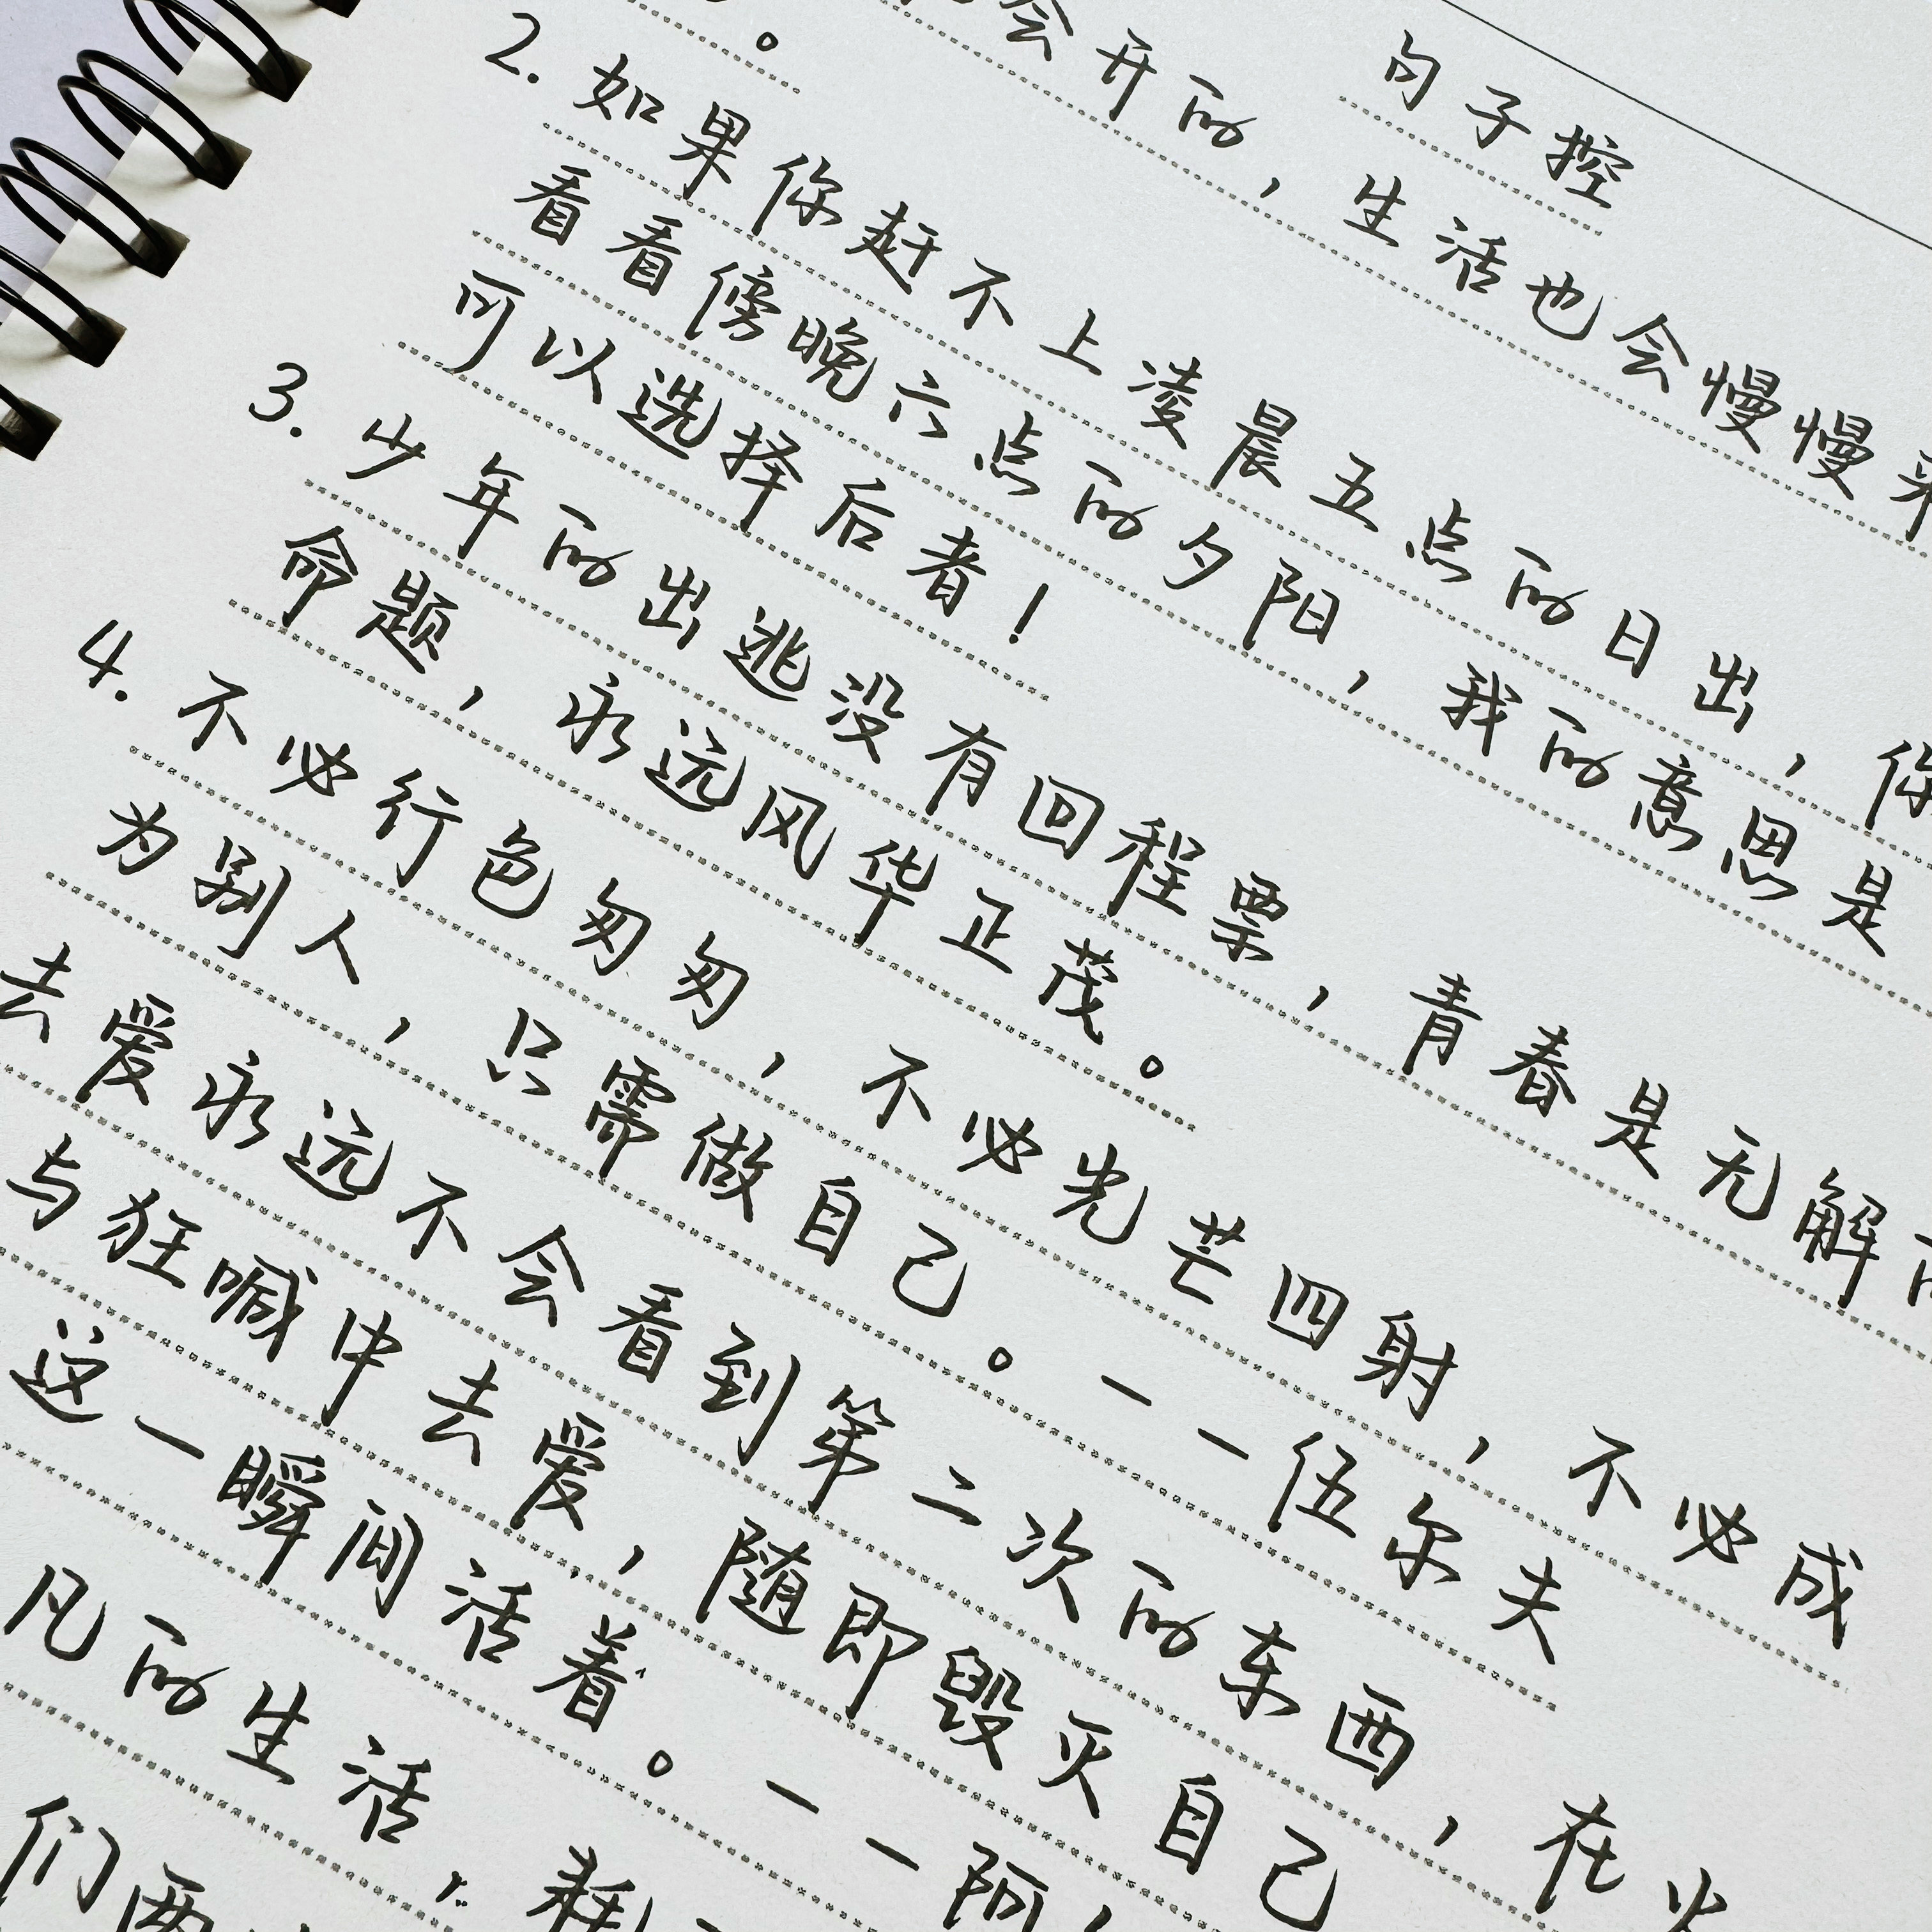 句子控
会开的，生活也会慢慢
。
2. 如果你赶不上凌晨五点的日出，你
看看傍晚六点的夕阳，我的意思是
可以选择后者！
3. 少年的出逃没有回程票，青春是无解
命题，永远风华正茂。
4. 不必行色匆匆，不必光芒四射，不必成
为别人，只需做自己。——伍尔夫
去爱永远不会看到第二次的东西，在火
与狂喊中去爱，随即毁灭自己
这一瞬间活着。——阿
凡的生活
们两